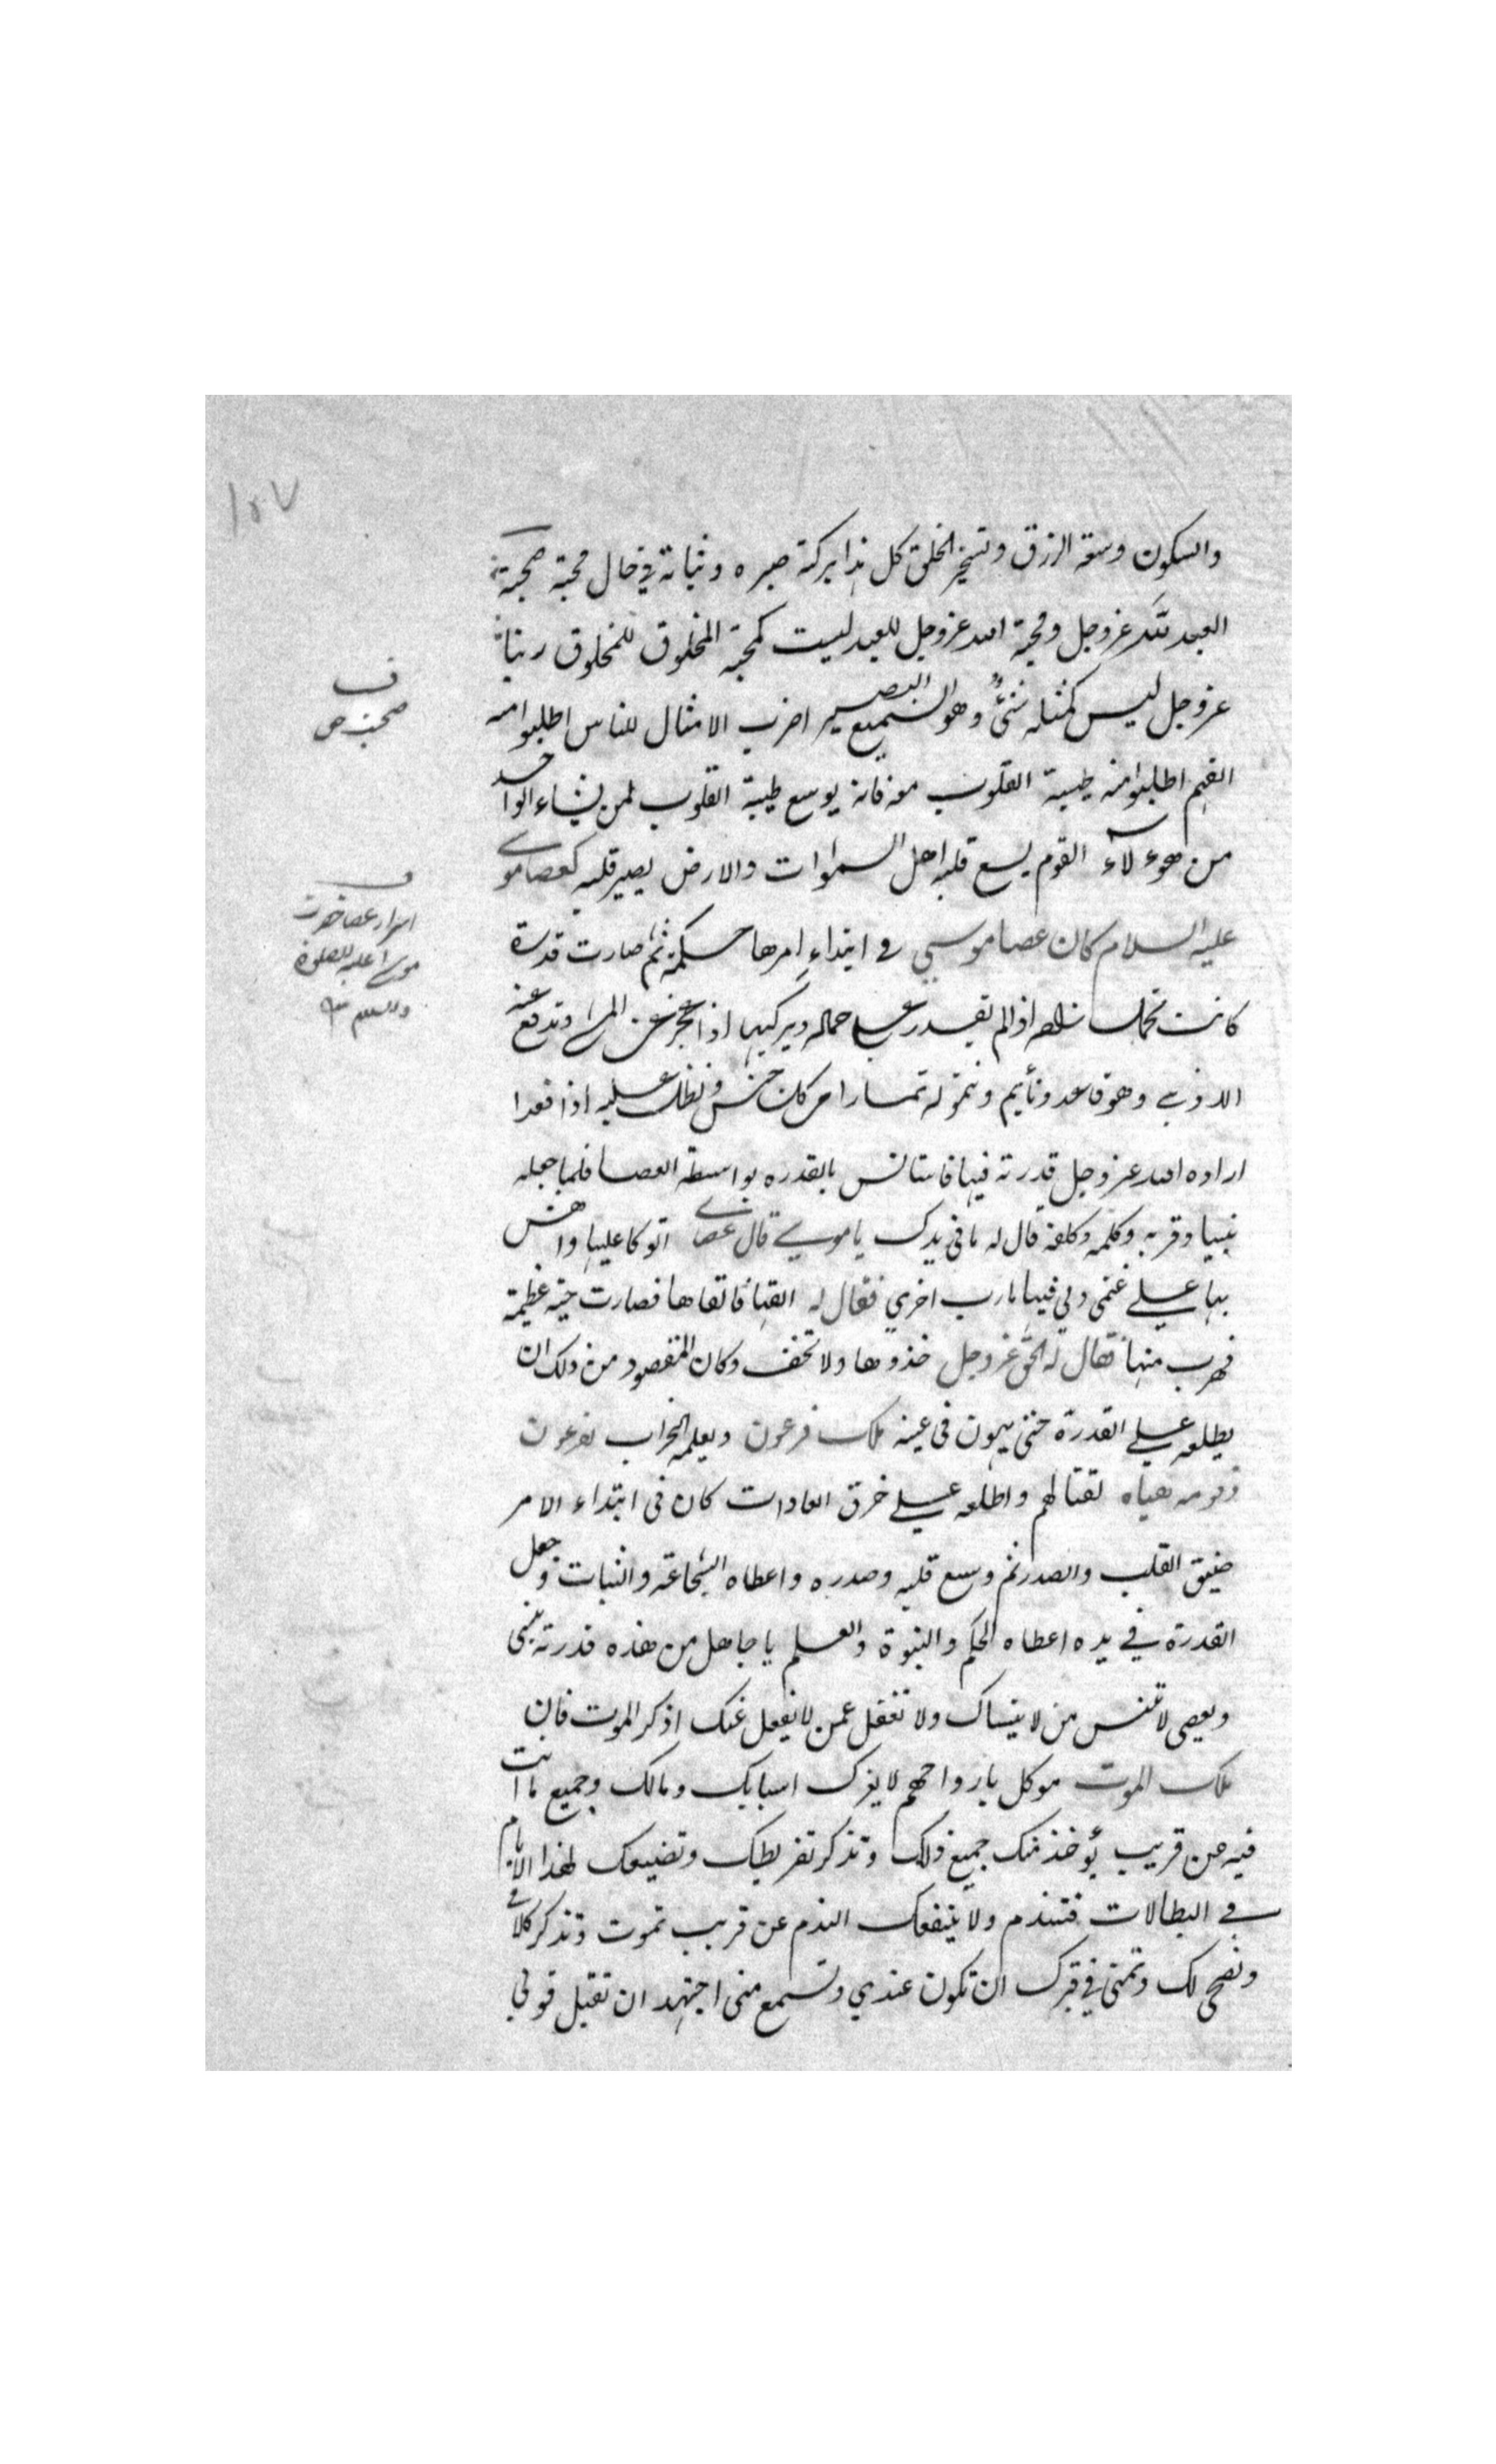 ١٥٧
والسكون وسعة الرزق وتسخير الخلق كل هذا ببركة صبره وثباته في حال محبة صحبة
العبد لله عز وجل ومحبة الله عز وجل للعبد ليست كمحبة المخلوق للمخلوق ربنا
عز وجل ليس كمثله شئ وهو السميع البصير اضرب الامثال للناس اطلبوا منه
الفهم اطلبوا منه طيبة القلوب معه فانه يوسع طيبة القلوب لمن يشاء الواحد
من هوءلآء القوم يسع قلبه اهل السموات والارض يصير قلبه كعصا موسى
عليه السلام كان عصا موسى في ابتداء امرها حكمة ثم صارت قدرة
كانت تحمل اذا لم يقدر على حماله ويركبها اذا عجز عن المشى وتدفع عنه
الاذى وهو قاعد ونأيم وتثمر له ثمارا من كل جنس وتظل عليه اذا قعد
اراده الله عز وجل قدرته فيها فاستانس بالقدره بواسطة العصا فلما جعله
نبيا وقربه وكلمه وكلفه قال له ما في يدك يا موسى قال عصاى اتوكا عليها واهش
بها على غنمى ولي فيها مارب اخري فقال له القها فالقاها فصارت حية عظيمة
فهرب منها فقال له الحق عز وجل خذوها ولا تخف وكان المقصود من ذلك ان
يطلعه على القدرة حتى يهون في عينه ملك فرعون ويعلمه الحراب لفرعون
وقومه هياه لقتالهم واطلعه على خرق العادات كان في ابتداء الامر
ضيق القلب والصدر ثم وسع قلبه وصدره واعطاه الشجاعة والثبات وجعل
القدرة في يده اعطاه الحكم والنبوة والعلم يا جاهل من هذه قدرته ينسى
ويعصى لا تنس من لا ينساك ولا تغفل عمن لا يغفل عنك اذكر الموت فان
ملك الموت موكل بارواحهم لا يغرك اسبابك ومالك وجميع ما انت
فيه عن قريب يؤخذ منك جميع ذلك وتذكر تفريطك وتضييعك لهذا الايام
في البطالات فتندم ولا ينفعك الندم عن قريب تموت وتذكر كلامى
ونصحى لك وتتمنى في قبرك ان تكون عندي وتسمع منى اجتهد ان تقبل قولي
ف
صحبت حق
ف
اسرار عصا حضرت
موسى عليه الصلوة
والسلام